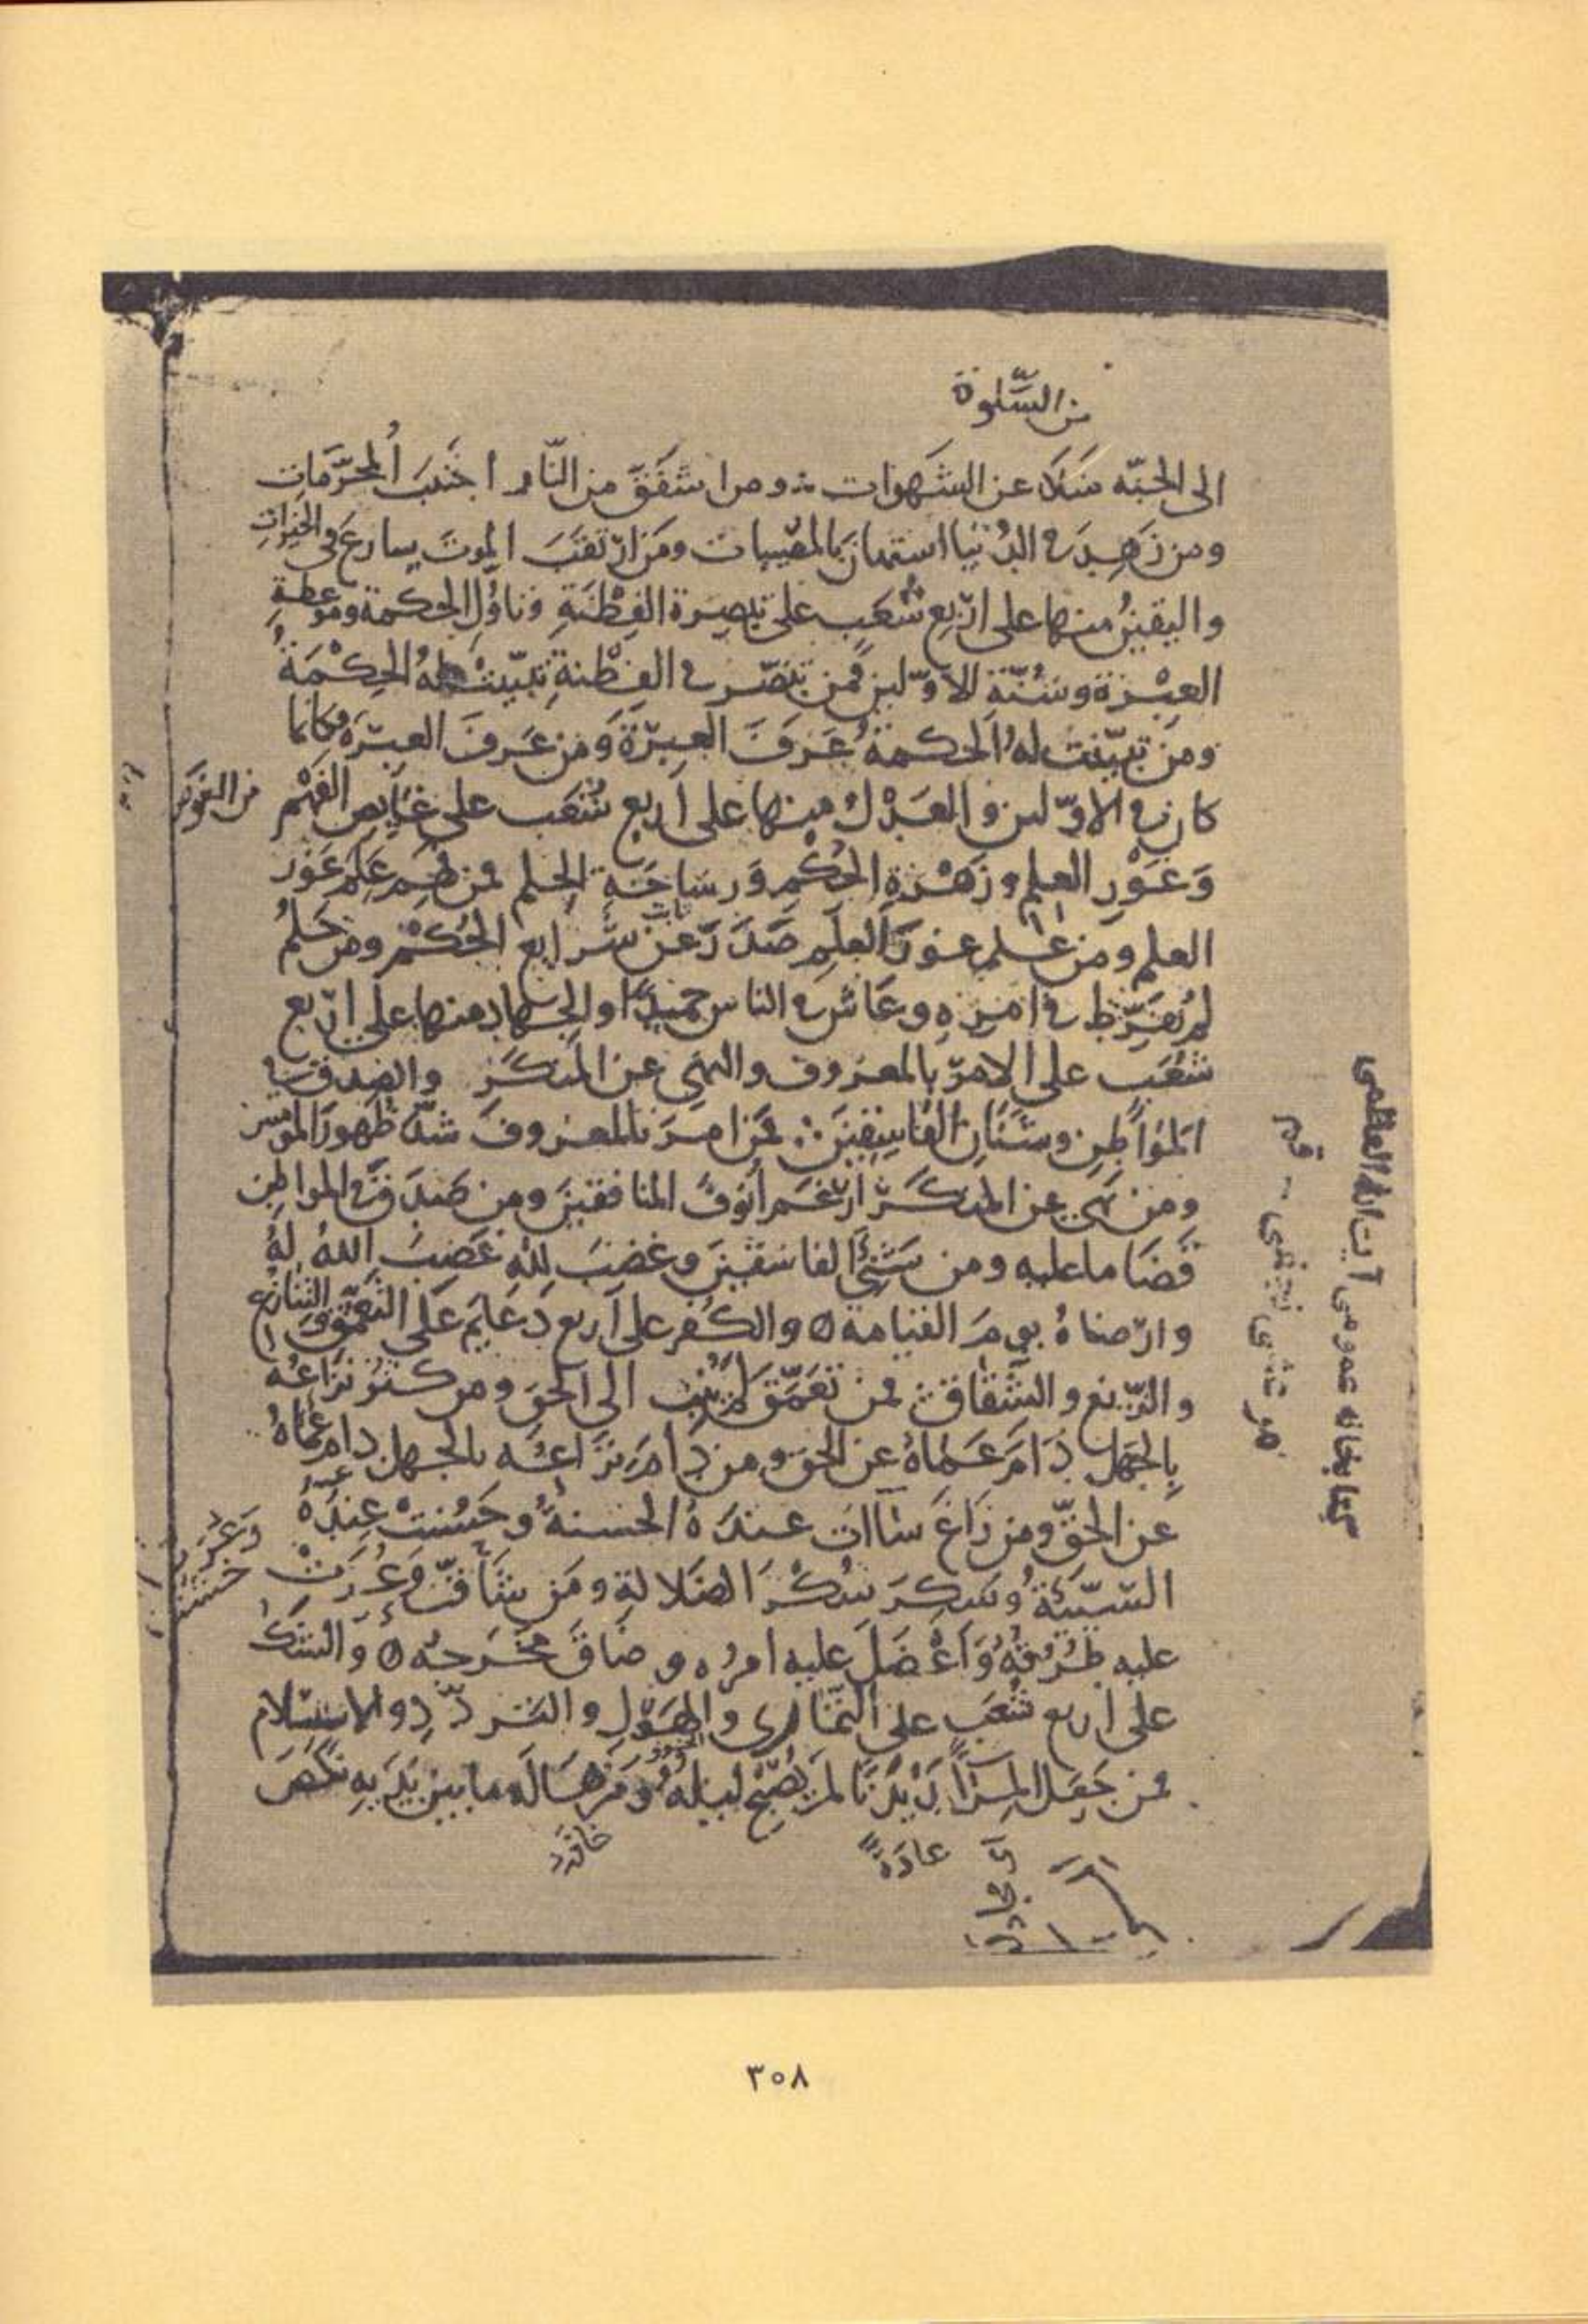 من السَّلوة
الى الجنّه سَلَا عن الشَهوات ومن اشفَقَ من النّار اجتنبَ المحرَّمات
ومن زَهِدَ في الدُنيا استهانَ بالمصيبات ومَن ارتقبَ الموتَ سارعَ في الخيراتِ
واليقينُ منها على اربع شُعَب على تبصرة الفِطْنَةِ وتاوُّل الحكمة وموعظةِ
العِبْرَة وسُنّة الاوّلين فمن تبصّر في الفِطْنةِ تبيّنتْ لهُ الحِكْمَةُ
ومن تبيّنت لهُ الحكمةُ عَرَفَ العِبرَةَ ومن عَرفَ العِبرَة فكانما
كان في الاوّلين والعَدْل منها على أربع شُعَب على غايص الفَهْم
وَغَوْرِ العِلم وزَهْرَةِ الحُكْمِ ورساخَةِ الحِلم فمن فهم عَلِمَ غَور
العلم ومن علم غورَ العِلم صَدَرَ عن شرايع الحُكْم ومن حَلُمَ
لم يُفَرِّط في امرِهِ وعَاشَ في الناس حميدًا والجهاد منها على اربع
شُعَب على الامر بالمعروف والنهي عن المنكَر والصِدق في
المواطِن وشَنَان الفاسِقينَ فمن امرَ بالمعروف شدّ ظهورَ المومنين
ومن نهى عن المنكَر ارغَمَ أنوفَ المنافقينَ ومن صَدَقَ في المواطِن
قَضَا ما عليه ومن شَنِئَ الفاسقينَ وغضبَ للهِ غَضِبَ اللهُ لهُ
وارضاهُ يومَ القيامة ٥ والكُفر على أربع دَعَايم عَلى التعمّق والتنازع
والزّيغ والشّقاق فمن تعمّق لم يُنِب الى الحق ومن كثر نزاعُه
بالجهل دَامَ عَماهُ عن الحق ومن دامَ نزاعُه بالجهل دام عماهُ
عن الحقّ ومن زاغَ ساات عندَهُ الحسنةُ وحَسُنتْ عِندَهُ
السّيّئةُ وسَكِرَ سُكْرَ الضَلالةِ ومَن شاقّ وَعُرَتْ
عليه طُرُقهُ وَأعْضَلَ عليه امرُه وضَاقَ مخرَجهُ ٥ وَالشك
على اربع شُعَب على التّماري والهَوْل والتردّدِ والاستِسلام
فمن جَعَل المِرآ دَيْدَنًا لم يُصْبح ليلهُ ومن هَالَه ما بين يَدَيهِ نكَصَ
عادَةً
كتابخانه عمومى آيت الله العظمى
مرعشى نجفى - قم
٣٠٨